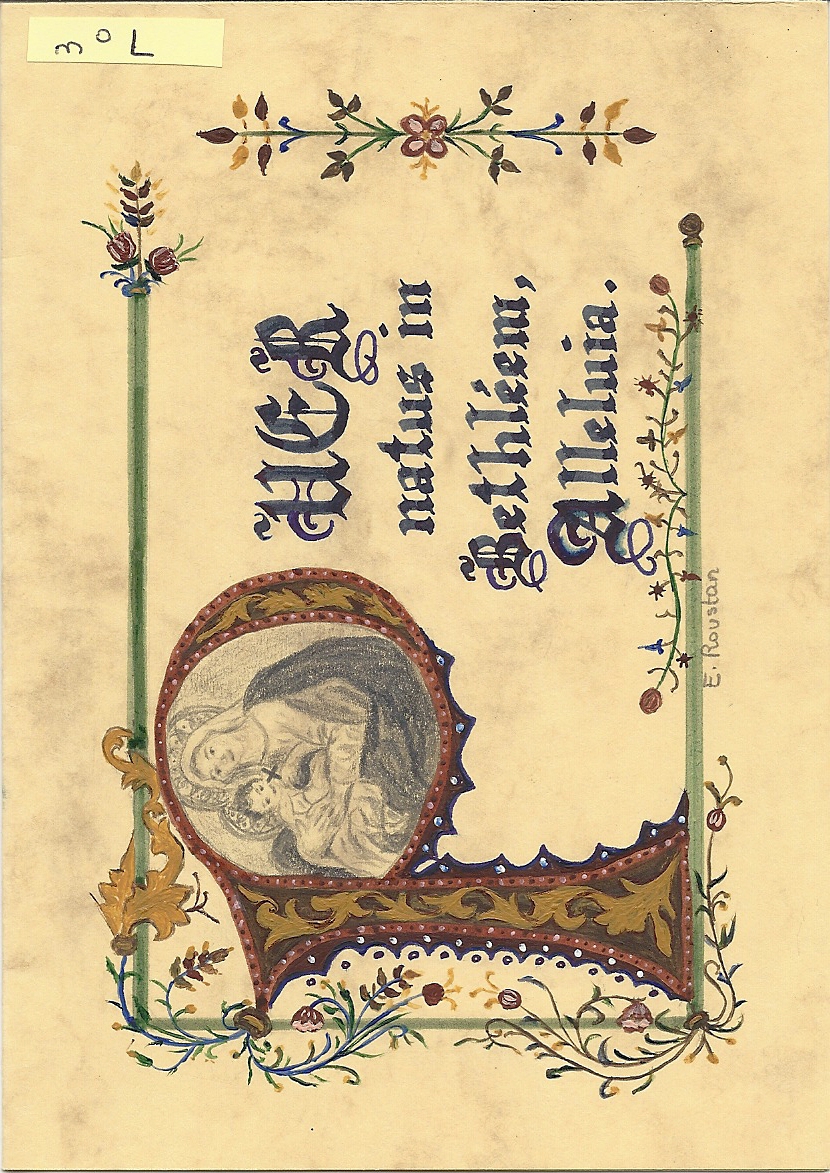 PUER
natus in
Bethléem,
Alleluia.
E. Roustan